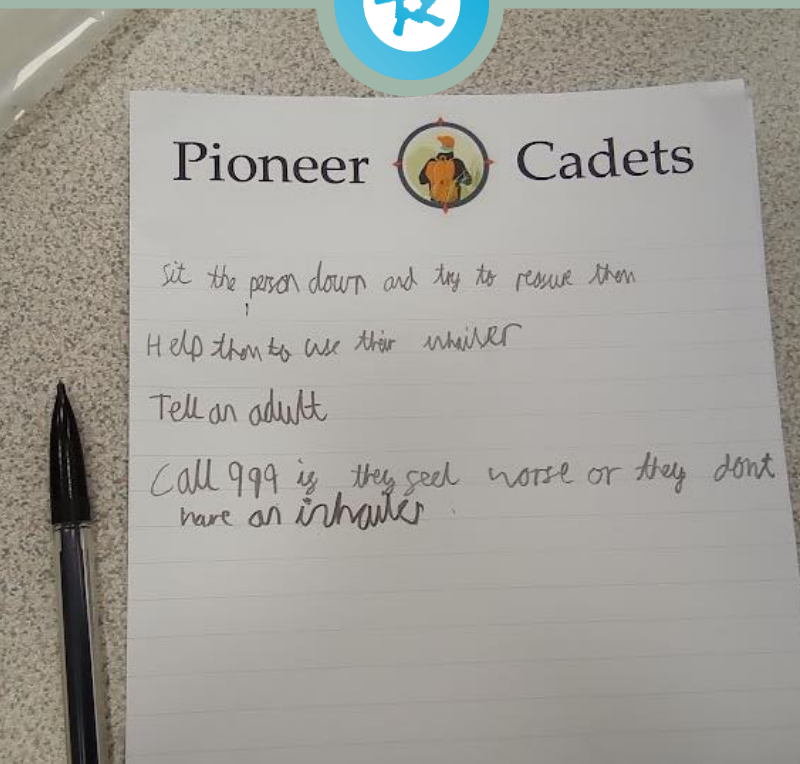 Pioneer Cadets
Sit the person down and try to reasure them
Help them to use their inhailer
Tell an adult
Call 999 if they feel worse or they dont
have an inhailer